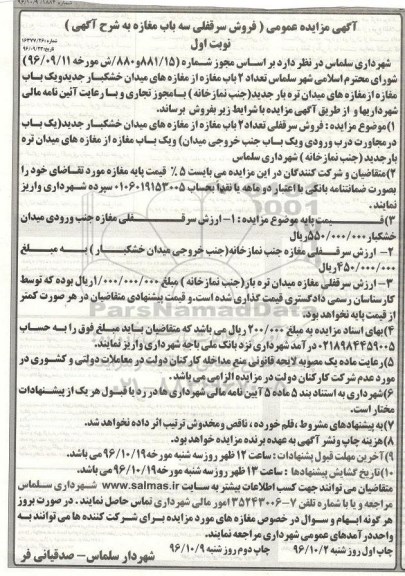 آگهی مزایده عمومی ( فروش سرقفلی سه باب مغازه به شرح آگهی )
شماره:۱۶۳۷۷/۲۶۰
نوبت اول
تاریخ:۹۶/۰۹/۲۳
شهرداری سلماس در نظر دارد بر اساس مجوز شماره (۸۸۱/۱۵و۸۸۰/ش مورخه ۹۶/۰۹/۱۱)
شورای محترم اسلامی شهر سلماس تعداد ۲ باب مغازه از مغازه های میدان خشکبار جدید ویک باب
مغازه از مغازه های میدان تره بار جدید(جنب نمازخانه ) با مجوز تجاری و با رعایت آئین نامه مالی
شهرداریها و از طریق آگهی مزایده با شرایط زیر بفروش برساند.
۱)موضوع مزایده : فروش سرقفلی تعداد۲ باب مغازه از مغازه های میدان خشکبار جدید(یک باب
در مجاورت درب ورودی ویک باب جنب خروجی میدان) ویک باب مغازه از مغازه های میدان تره
بار جدید (جنب نمازخانه ) شهرداری سلماس
۲)متقاضیان و شرکت کنندگان در این مزایده می بایست ۵ ٪ قیمت پایه مغازه مورد تقاضای خود را
بصورت ضمانتنامه بانکی با اعتبار دو ماهه یا نقداً بحساب ۰۱۰۶۰۱۹۱۵۳۰۰۵ سپرده شهرداری واریز
نمایند .
۳)قیمت پایه موضوع مزایده : ۱- ارزش سرقفلی مغازه جنب ورودی میدان
خشکبار ۵۵۰/۰۰۰/۰۰۰ریال
۲- ارزش سرقفلی مغازه جنب نمازخانه(جنب خروجی میدان خشکبار ) به مبلغ
۴۵۰/۰۰۰/۰۰۰ریال
۳- ارزش سرقفلی مغازه میدان تره بار(جنب نمازخانه ) مبلغ ۱/۰۰۰/۰۰۰/۰۰۰ریال بوده که توسط
کارشناسان رسمی دادگستری قیمت گذاری شده است.و قیمت پیشنهادی متقاضیان در هر صورت کمتر
از قیمت پایه نخواهد بود.
۴)بهای اسناد مزایده به مبلغ ۲۰۰/۰۰۰ ریال می باشد که متقاضیان بساید مبلغ فوق را به حساب
۰۲۱۸۹۸۴۴۵۹۰۰۵ درآمد شهرداری نزد بانک ملی باجه شهرداری واریز نمایند.
۵)رعایت ماده یک مصوبه لایحه قانونی منع مداخله کارکنان دولت در معاملات دولتی و کشوری در
مورد عدم شرکت کارکنان دولت در مزایده الزامی می باشد
۶)شهرداری به استناد بند ۵ ماده ۵ آیین نامه مالی شهرداری ها در رد یا قبول هر یک از پیشنهادات
مختار است.
۷)به پیشنهادهای مشروط ،قلم خورده ، ناقص و مخدوش ترتیب اثر داده نخواهد شد.
۸)هزینه چاپ ونشر آگهی به عهده برنده مزایده خواهد بود.
۹)آخرین مهلت قبول پشنهادات : ساعت ۱۲ ظهر روز سه شنبه مورخه ۹۶/۱۰/۱۹ می باشد.
۱۰)تاریخ گشایش پیشنهادها : ساعت ۱۳ ظهر روز سه شنبه مورخه ۹۶/۱۰/۱۹ می باشد.
متقاضیان می توانند جهت کسب اطلاعات بیشتر به سایت www.salmas.ir شهرداری سلماس
مراجعه و یا با شماره تلفن ۷-۳۵۲۴۳۰۰۶ امور مالی شهرداری تماس حاصل نمایند . در صورت بروز
هر گونه ابهام و سوال در خصوص مغازه های مورد مزایده برای شرکت کننده ها می توانند به
واحددرآمدهای عمومی شهرداری مراجعه نمایند.
چاپ اول روز شنبه ۹۶/۱۰/۲ چاپ دوم روز شنبه ۹۶/۱۰/۹
شهردار سلماس- صدقیانی فر